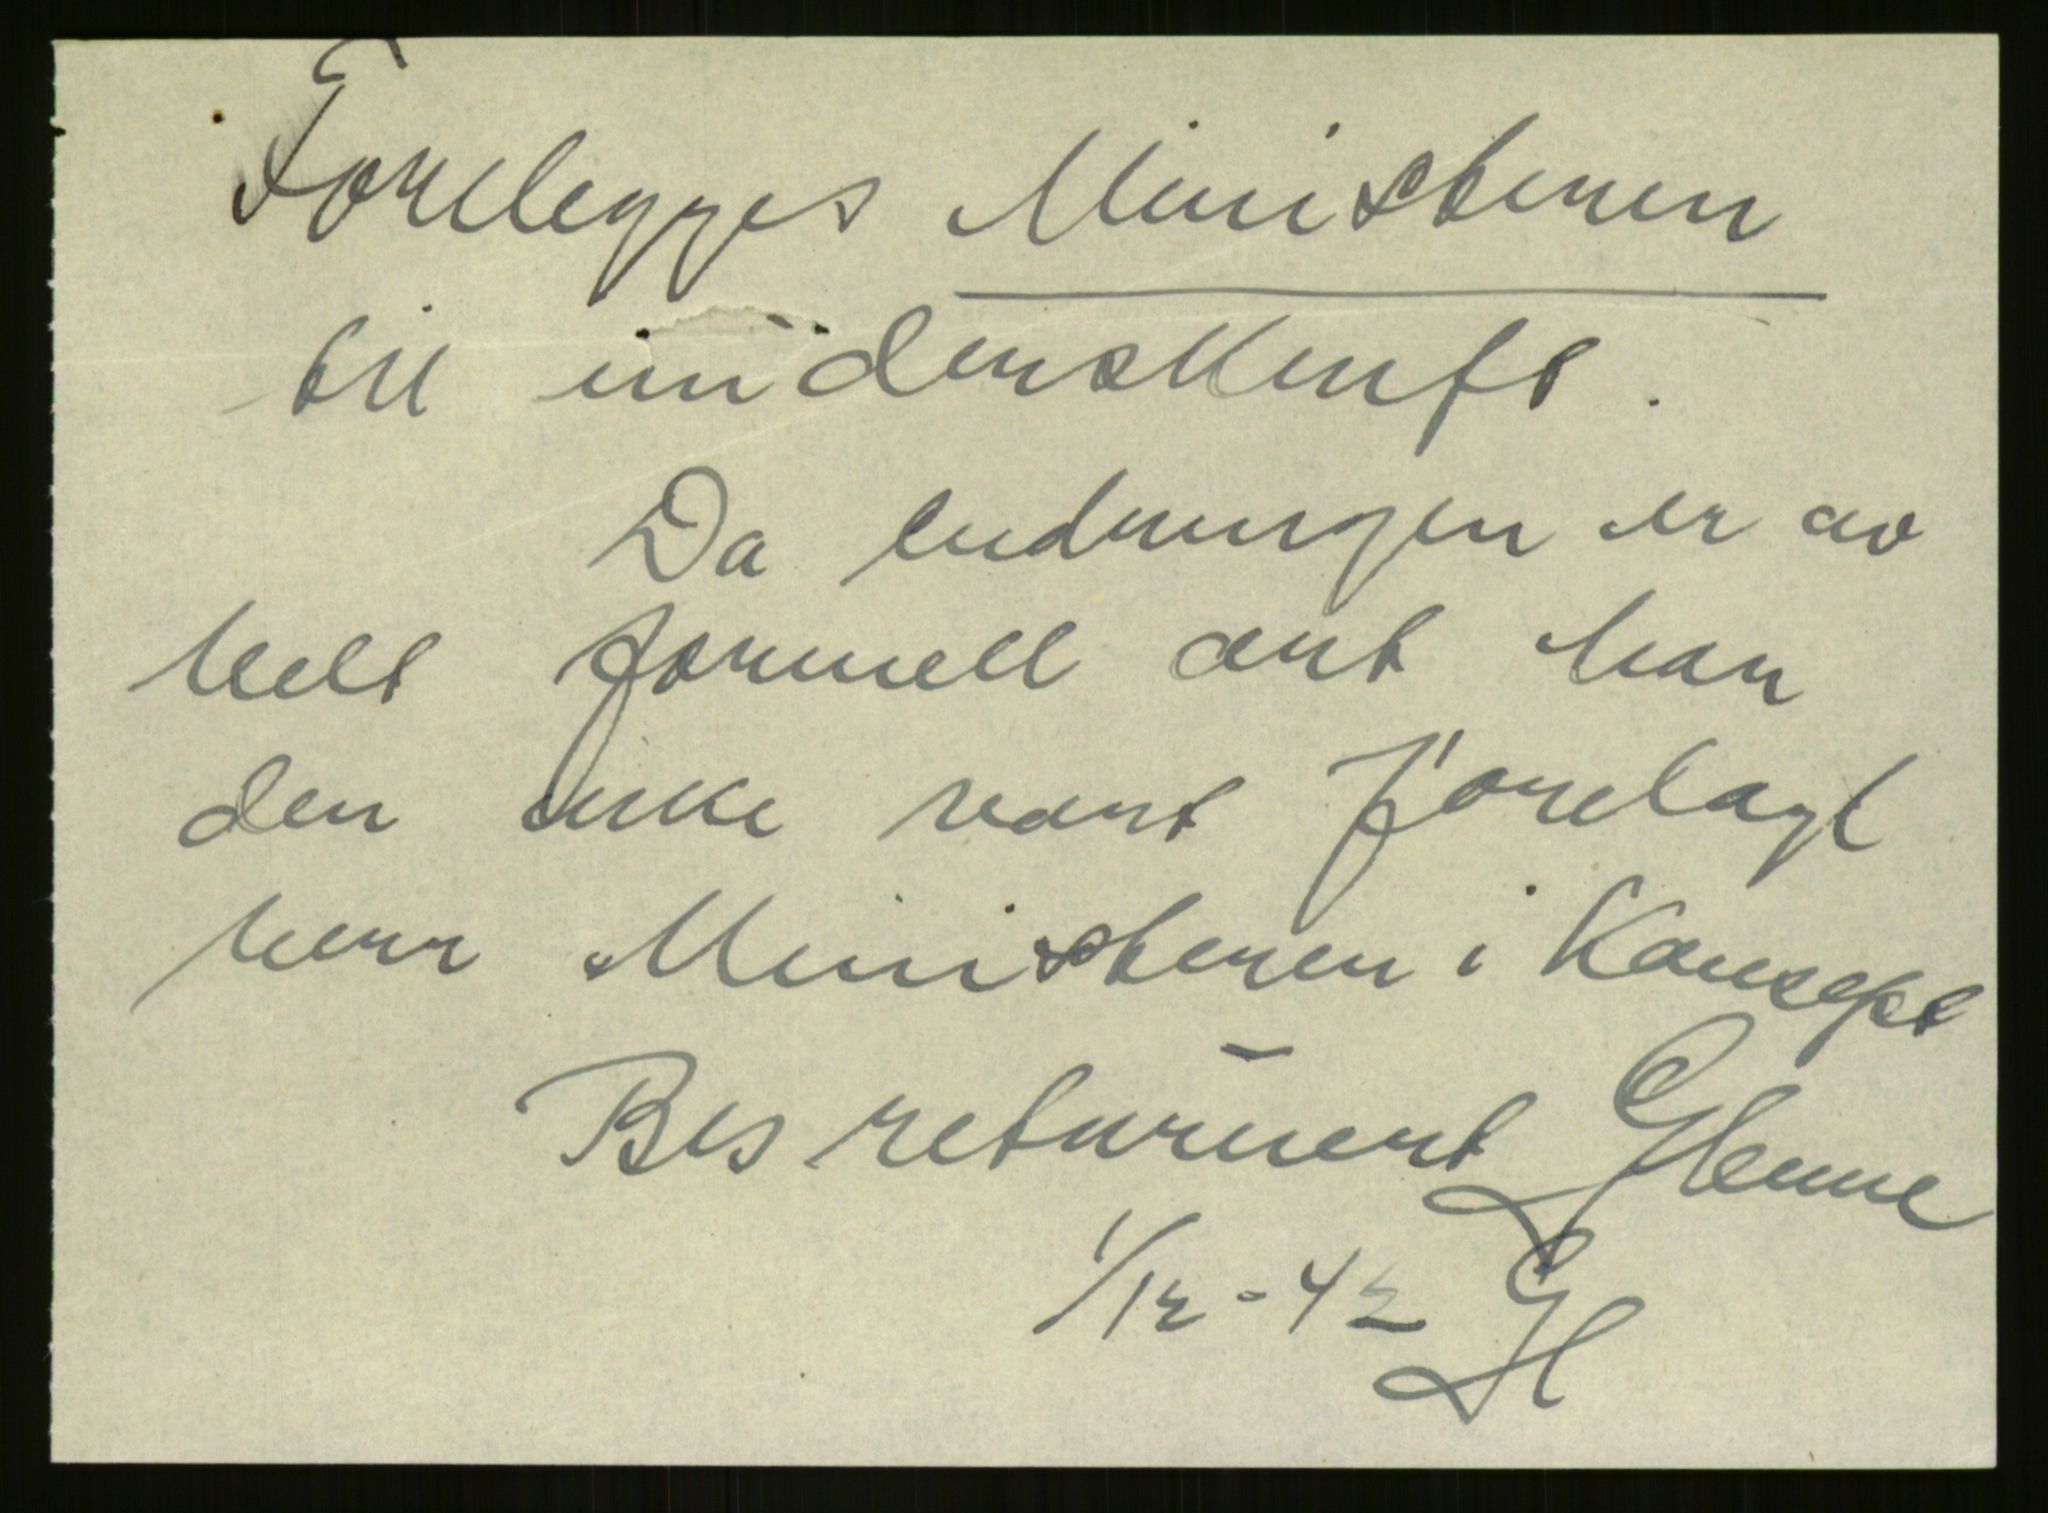 Forelegges Ministeren
til underskrift.
Da endringen er av
helt formell art har
den ikke vært forelagt
herr Ministeren i Konsept
Bes returnert
1/12-42 H